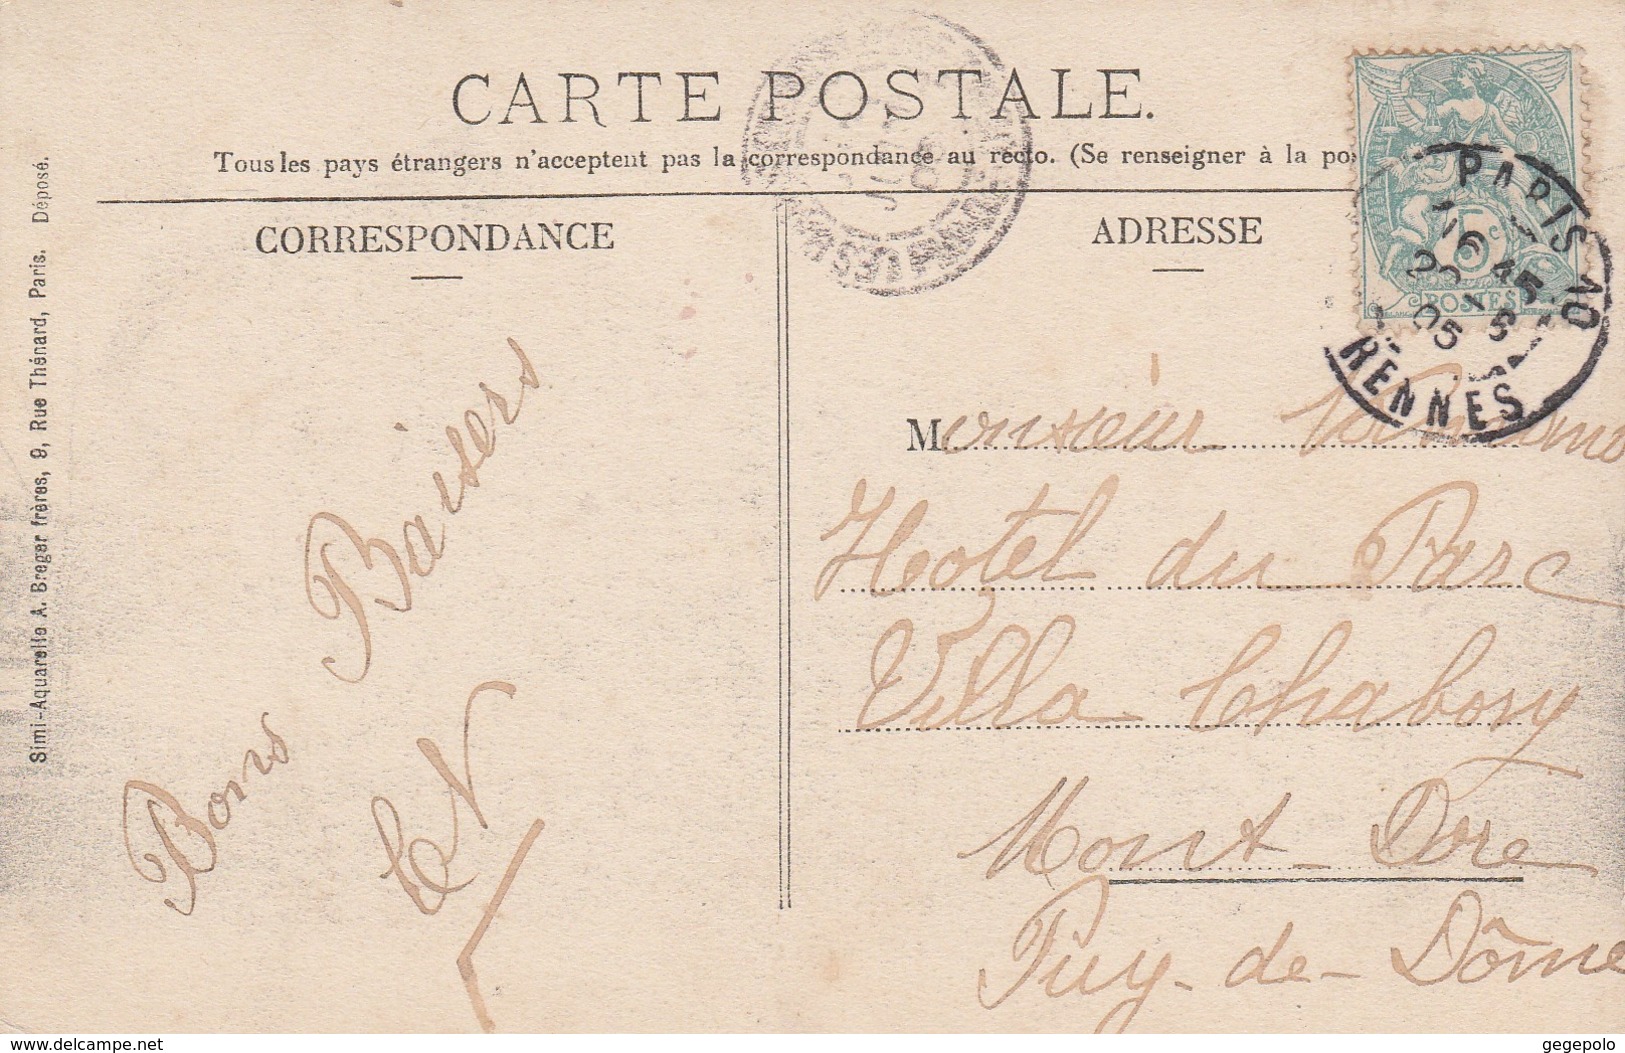 CARTE POSTALE.
Tous les pays étrangers n'acceptent pas la correspondance au recto. (Se renseigner à la po
CORRESPONDANCE
ADRESSE
Simi-Aquarelle A. Breger frères, 9, Rue Thénard, Paris. Déposé.
5c
POSTES
PARIS 10
16 45
RENNES
Bons Baisers
Monsieur
Hotel du Parc
Villa Chabory
Mont-Dore
Puy-de-Dôme
www.delcampe.net
gegepolo